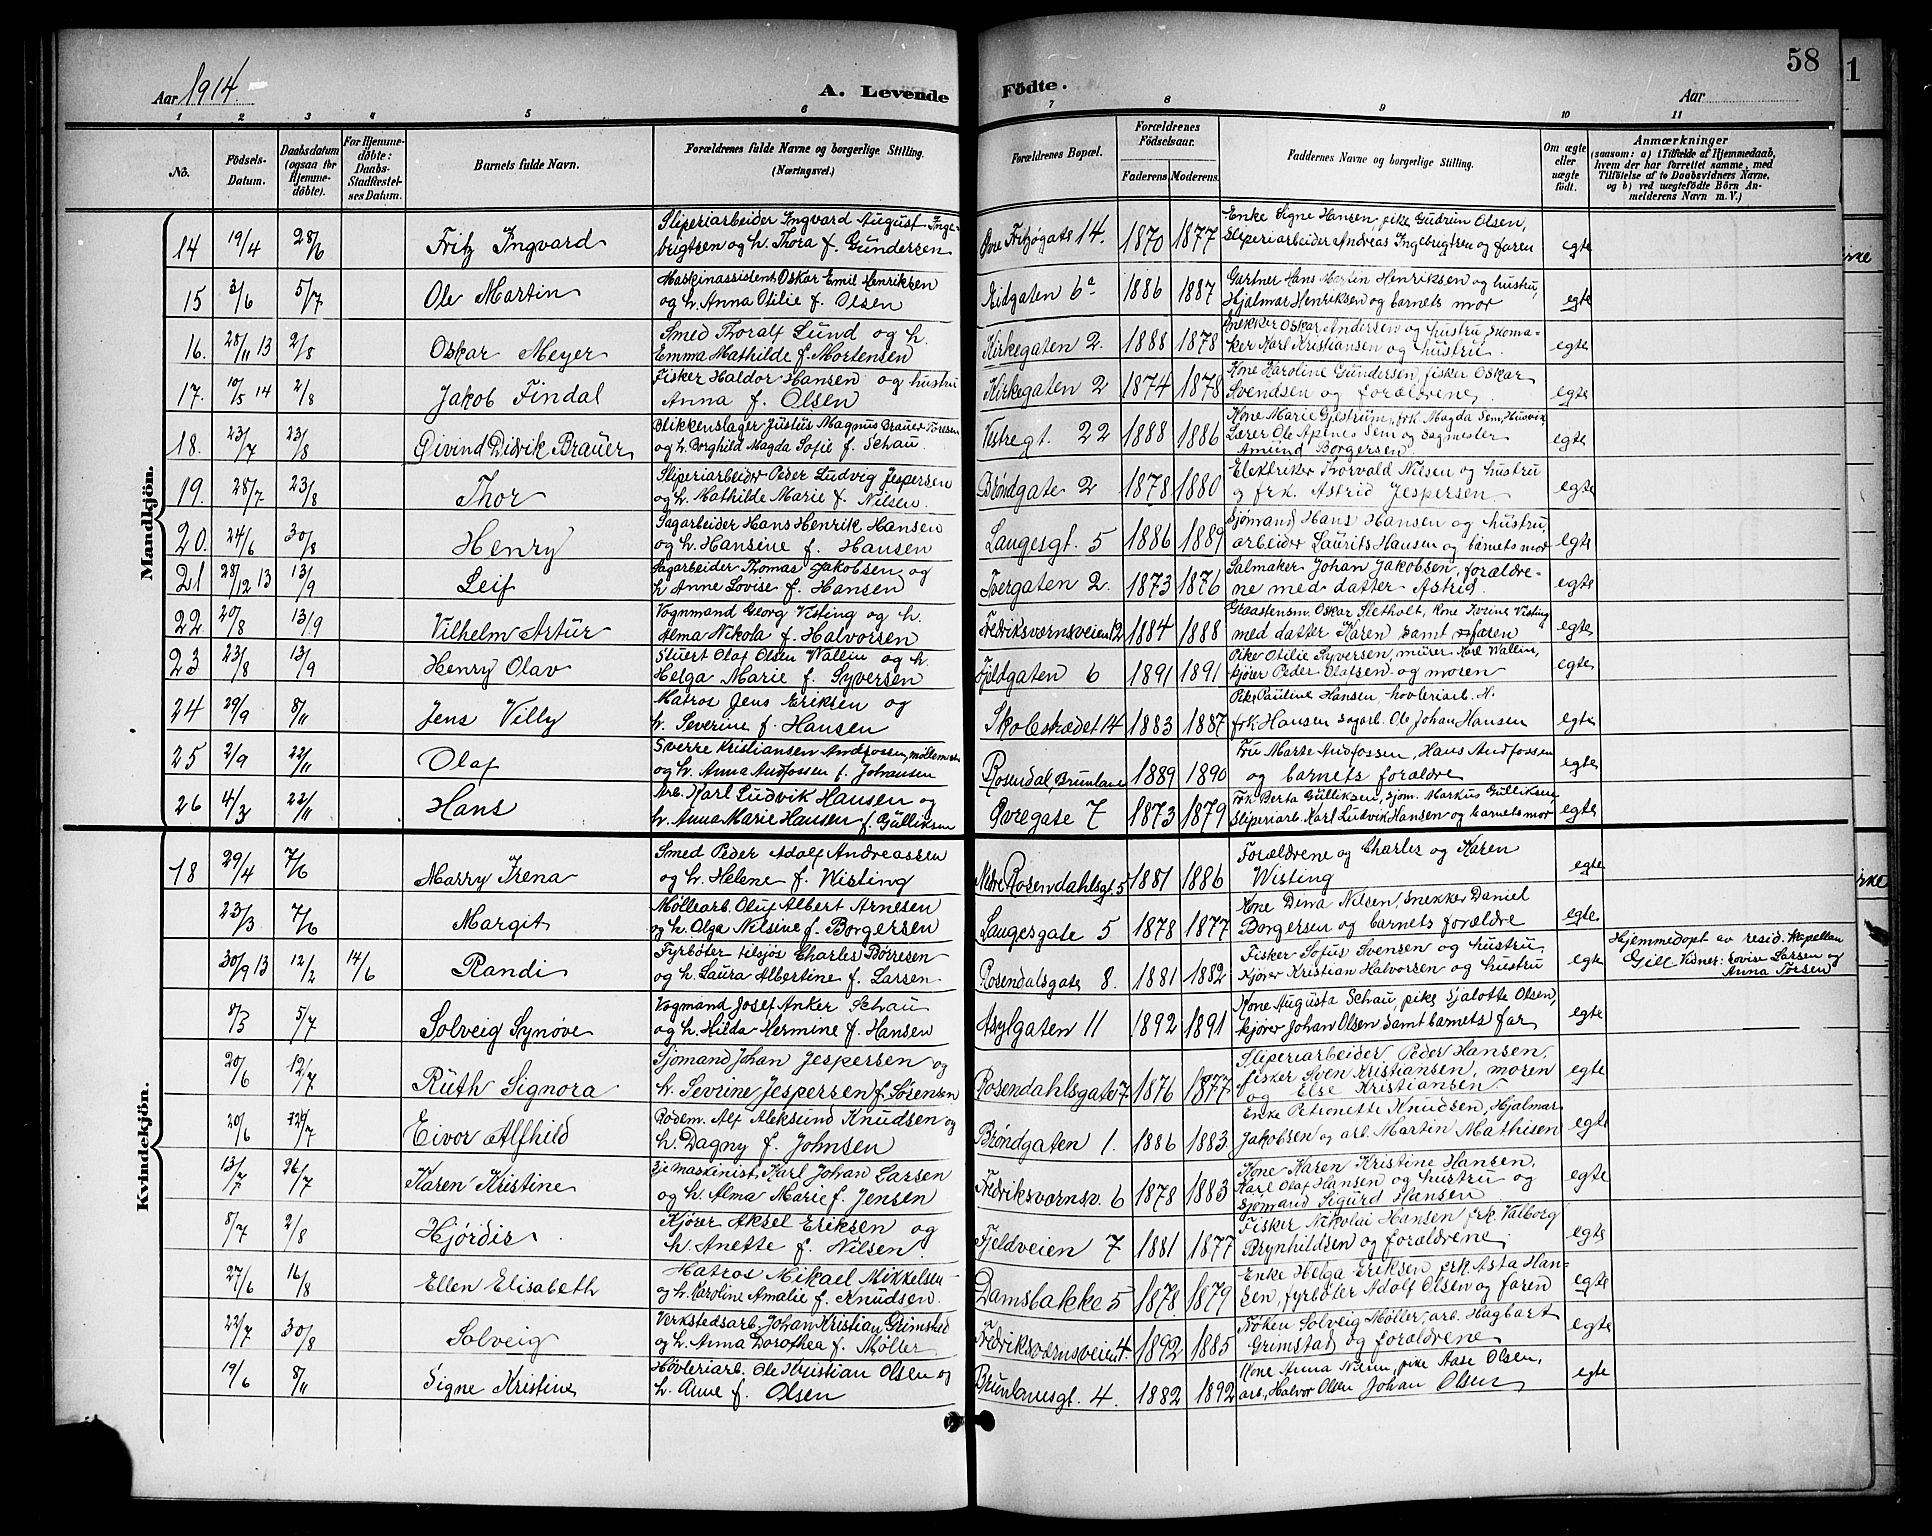 58
Aar 1914.
A. Levende Födte.
Aar
1 2 3 4 5 6 7 8 9 10 11
No.
Födsels-Datum.
Daabsdatum (ogsaa for Hjemmedöbte).
For Hjemmedöbte: Daabs-Stadfæstelses Datum.
Barnets fulde Navn.
Forældrenes fulde Navne og borgerlige Stilling. (Næringsvei.)
Forældrenes Bopæl.
Forældrenes Födselsaar.
Faderens. Moderens.
Faddernes Navne og borgerlige Stilling.
Om ægte eller uægte födt.
Anmærkninger
(saasom: a) i Tilfælde af Hjemmedaab, hvem der har forrettet samme, med Tilföielse af to Daabsvidners Navne, og b) ved uægtefödte Börn Anmelderens Navn m. V.)
Mandkjön.
14 19/4 28/6 Fritz Ingvard Sliperiarbeider Ingvard August Ingebrigtsen og h. Thora f. Gundersen Øvre Fritzøgate 14. 1870 1877 Enke Signe Hansen, pike Gudrun Olsen, Sliperiarbeider Andreas Ingebrigtsen og faren egte
15 3/6 5/7 Ole Martin Maskinassistent Oskar Emil Henriksen og h. Anna Otilie f. Olsen Kidgaten 6a 1886 1887 Gartner Hans Martin Henriksen og hustru, Hjalmar Henriksen og barnets mor egte
16. 28/11 13 2/8 Oskar Meyer Smed Thoralf Lund og h. Emma Mathilde f. Mortensen Kirkegaten 2. 1888 1878 Snekker Oskar Andersen og hustru, skomaker Karl Kristiansen og hustru. egte
17. 10/5 14 2/8 Jakob Findal Fisker Haldor Hansen og hustru Anna f. Olsen Kirkegaten 2 1874 1878 Kone Karoline Gundersen, fisker Oskar Svendsen og forældrene egte
18. 23/7 23/8 Øivind Didrik Brauer Blikkenslager Justus Magnus Brauer Thoresen og h. Borghild Magda Sofie f. Schau Vestregt. 22 1888 1886 Kone Marie Gjestrum, frk. Magda Sem, Husvik, Lærer Ole Apenes Sem og sagmester Amund Borgersen egte
19. 28/7 23/8 Thor Sliperiarbeider Peder Ludvig Jespersen og h. Mathilde Marie f. Nilsen. Brøndgate 2 1878 1880 Elektriker Thorvald Nilsen og hustru og frk. Astrid Jespersen egte
20. 24/6 30/8 Henry Sagarbeider Hans Henrik Hansen og h. Hansine f. Hansen Langesgt. 5 1886 1889 Sjømand Hans Hansen og hustru, arbeider Laurits Hansen og barnets mor egte
21 28/12 13 13/9 Leif Sagarbeider Thomas Jakobsen og h Anne Lovise f. Hansen Tvergaten 2. 1873 1876 Salmaker Johan Jakobsen, forældrene med datter Astrid. egte
22 20/8 13/9 Vilhelm Artur Vognmand Georg Visting og h. Alma Nikola f. Halvorsen Fredriksværnsveien 12 1884 1888 Graastensm. Oskar Sletholt, Kone Karine Visting med datter Karen samt faren egte
23 23/8 13/9 Henry Olav Stuert Olaf Olsen Wallin og h. Helga Marie f. Syversen Fjeldgaten 6 1891 1891 Pike Otilie Syversen, murer Karl Wallin, kjører Peder Olafsen og moren egte
24 29/9 8/11 Jens Villy Matros Jens Eriksen og h. Severine f. Hansen Skolestrædet 14 1883 1887 Pike Pauline Hansen, hovleriarb. H. frk Hansen sagarl. Ole Johan Hansen egte
25 2/9 22/11 Olaf Sverre Kristiansen Andfossen, møllemester og h. Anna Andfossen f. Johansen Rosendal, Brunlanes 1889 1890 Fru Marie Andfossen, Hans Andfossen og barnets forældre egte
26 4/3 22/11 Hans Arb. Karl Ludvik Hansen og h. Anna Marie Hansen f. Gulliksen Øvregate 7 1873 1879 Frk Berta Gulliksen, sjøm. Markus Gulliksen, Sliperiarb. Karl Ludvik Hansen og barnets mor egte
Kvindekjön.
18 29/4 7/6 Marry Irena Smed Peder Adolf Andreassen og h. Helene f. Wisting Nedre Rosendahlsgt. 5 1881 1886 Forældrene og Charles og Karen Wisting egte
23/3 7/6 Margit Møllearb. Oluf Albert Arnesen og h. Olga Nilsine f. Borgersen Langesgate 5 1878 1877 Kone Dena Nilsen, snekker Daniel Borgersen og barnets forældre egte
30/9 13 12/2 14/6 Randi Fyrbøter tilsjøs Charles Børresen og h. Laura Albertine f. Larsen Rosendalsgate 8. 1881 1882 Fisker Sofus Svensen og hustru, Kjører Kristian Halvorsen og hustru egte Hjemmedøpt av resid. Kapellan Gill Vidner: Lovise Larsen og Anna Torsen
8/3 5/7 Solveig Synøve Vogmand Josef Anker Schau og h. Hilda Hermine f. Hansen Asylgaten 11 1892 1891 Kone Augusta Schau, pike Sjalotte Olsen, kjører Johan Olsen samt barnets far egte
20/6 12/7 Ruth Signora Sjømand Johan Jespersen og h. Sevrine Jespersen f. Sørensen Rosendahlsgate 7 1876 1877 Sliperiarbeider Peder Hansen, fisker Sven Kristiansen, moren og Else Kristiansen egte
20/6 12/7 Eivor Alfhild Rodem. Alf Aleksund Knudsen og h. Dagny f. Johnsen Brøndgaten 1. 1886 1883 Enke Petronette Knudsen, Hjalmar Jakobsen og arb. Martin Mathisen egte
13/7 26/7 Karen Kristine 3je maskinist Karl Johan Larsen og h. Alma Marie f. Jensen Fredriksværnsv. 6 1878 1883 Kone Karen Kristine Hansen, Karl Olaf Hansen og hustru og Sjømand Sigurd Hansen egte
8/7 2/8 Hjørdis Kjører Aksel Eriksen og h. Anette f. Nilsen Fjeldveien 7 1881 1877 Fisker Nikolai Hansen frk. Valborg Brynhildsen og forældrene. egte
27/6 16/8 Ellen Elisabeth Matros Mikael Mikkelsen og h. Karoline Amalie f. Knudsen. Damsbakke 5 1878 1879 Enke Helga Eriksen, frk. Asta Hansen, fyrbøter Adolf Olsen og faren egte
22/7 30/8 Solveig Verkstedsarb. Johan Kristian Grimstad og h. Anna Dorothea f. Møller Fredriksværnsveien 4. 1892 1885 Frøken Solveig Møller, arb. Hagbart Grimstad og forældrene egte
19/6 8/11 Signe Kristine Høvleriarb. Ole Kristian Olsen og h. Anne f. Olsen Brunlanesgt. 4. 1882 1892 Kone Anna Niem, pike Aase Olsen, arb. Halvor Olsen Johan Olsen egte